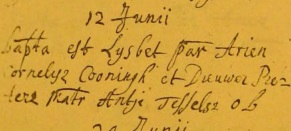 12 Junii
bapta est Lysbet par Arien
Cornelysz Cooningh et Duuwer Pie-
tersz Matr Antje Jesselsz ob
20 Junii